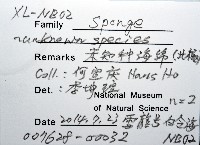 XL-NB02
Family Sponge
unknown species
Remarks 未知种海綿
Coll.: 何宣慶 Hans Ho
Det.: 李坤瑄
National Museum
of Natural Science n=2
Date 2014.7.23
007628-00032 NB02